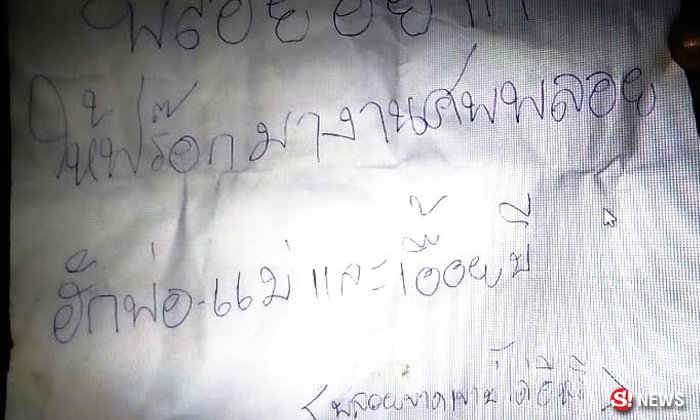 พลอยอยาก
ให้ฟร๊อกมางานศพพลอย
ฮักพ่อ-แม่ และเอื้อยบี
(พลอยขาดเขาบ่ได้อีหลี)
S! NEWS